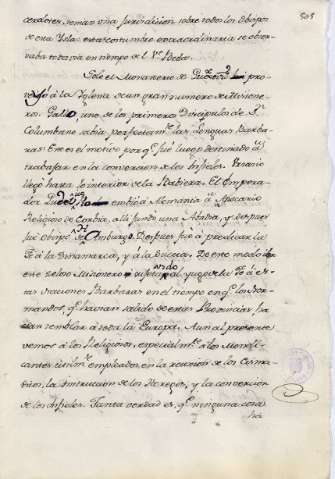 303
cerdotes, tenian una jurisdiccion sobre todos los Obispos
de esta Ysla: esta costumbre extraordinaria se obser-
vaba todavia en tiempo de el Ve. Beda.
Solo el Monasterio de pro-
veyó á la Yglesia de un gran numero de Misione-
ros. Gallo, uno de los primeros Discipulos de Sn.
Columbano sabia perfectamte. las lenguas Barba-
ras: Este es el motivo por qe. fué luego destinado á
trabajar en la conversion de los Infieles.
llegó hasta lo interior de la Babiera. El Empera-
dor embió á Alemania á
Religioso de Corbia, alli fundó una Abadia, y despues
fué obispo de Amburgo. Despues fué á predicar la
Fé á la Dinamarca, y á la Suecia. De este modo
este zeloso Misionero la Fé á es-
tas naciones Barbaras en el tiempo en qe. los Nor-
mandos, qe. havian salido de estas Provincias ha-
cian temblar á toda la Europa. Aun al presente
vemos á los Religiosos, especialmte. á los Mendi-
cantes utilmte. empleados en la reunion de los Cisma-
ticos, la instruccion de los Hereges, y la conversion
de los Infieles. Tanta verdad es, qe. ninguna cosa